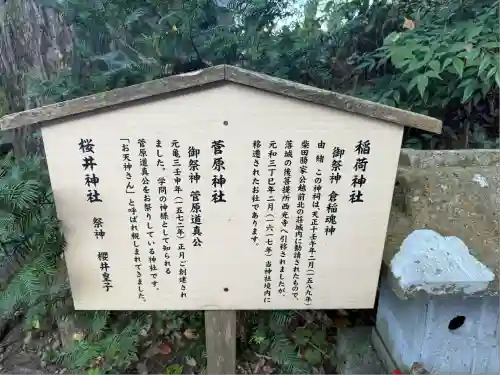 稲荷神社
御祭神 倉稲魂神
由緒 この神祠は、天正十壬午年二月(一五八九年)
柴田勝家公越前北の荘城内に勧請されたもので、
落城の後菩提所西光寺へ引移されましたが、
元和三丁巳年二月(一六一七年)当神社境内に
移遷されたお社であります。
菅原神社
御祭神 菅原道真公
元亀三壬申年(一五七二年)正月ご創建され
ました。学問の神様として知られる
菅原道真公をお祭りしている神社です。
「お天神さん」と呼ばれ親しまれてきました。
桜井神社 祭神 櫻井皇子